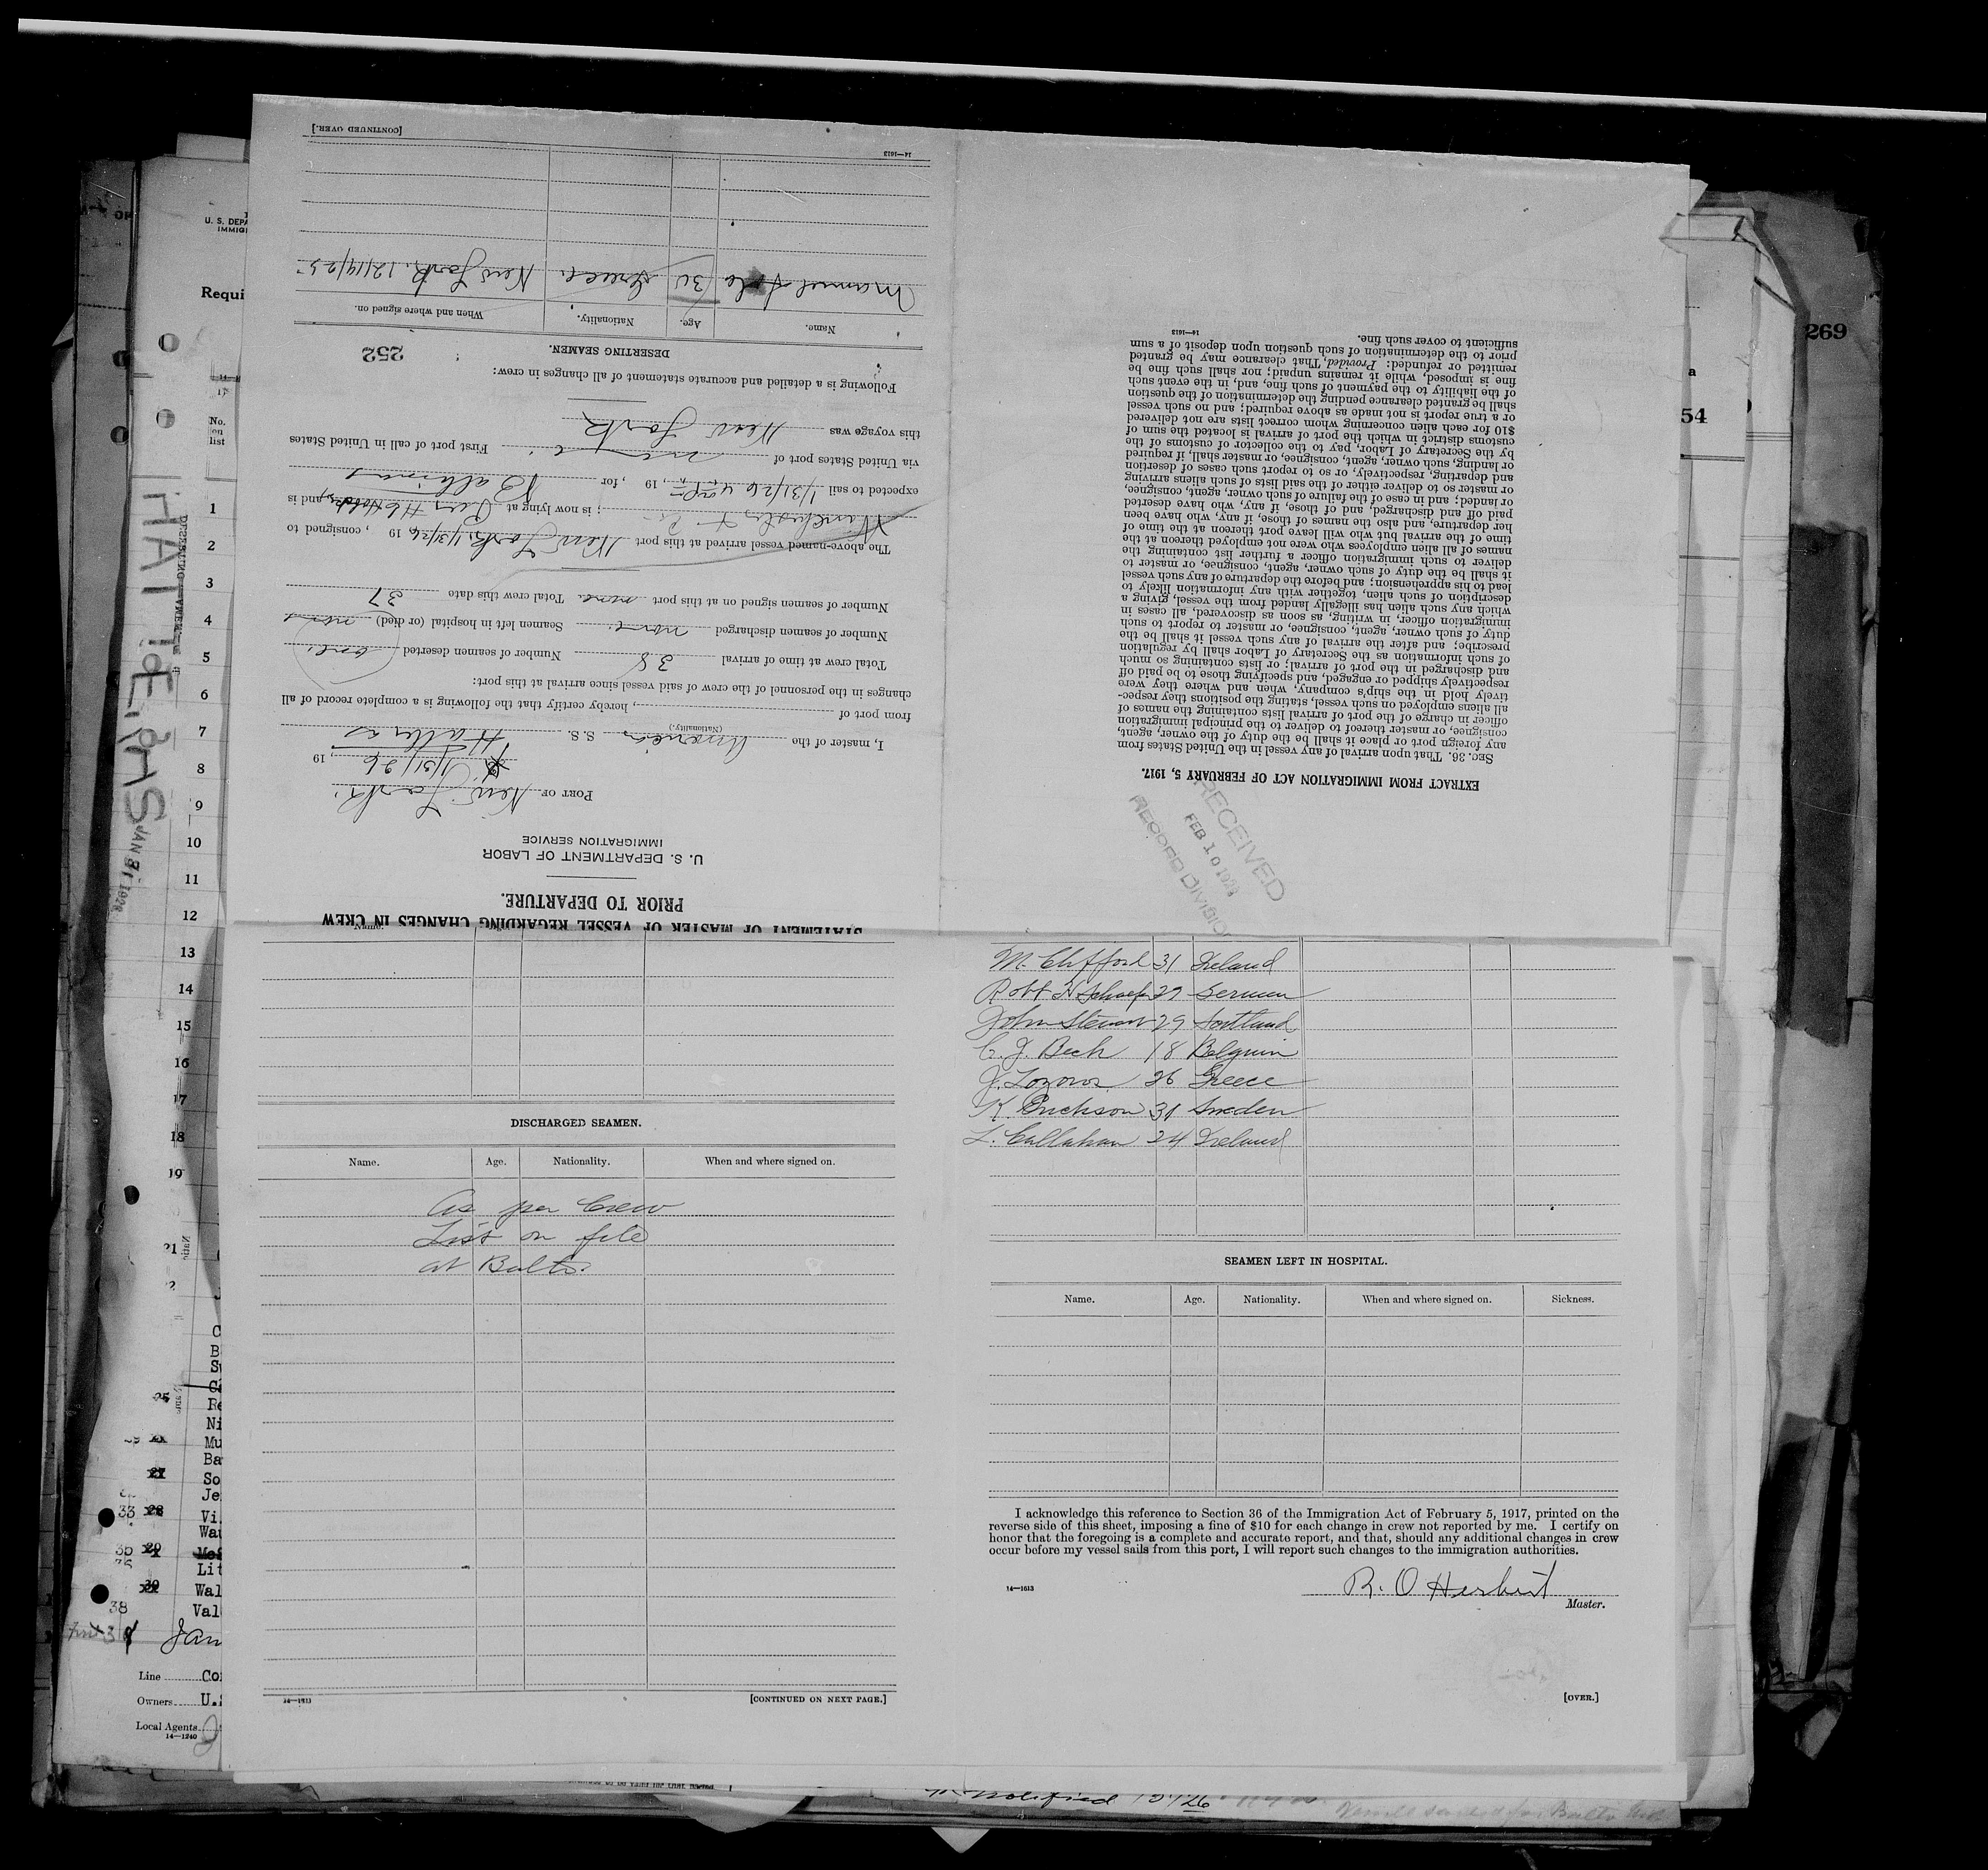 STATEMENT OF MASTER OF VESSEL REGARDING CHANGES IN CREW
PRIOR TO DEPARTURE.
U. S. DEPARTMENT OF LABOR
IMMIGRATION SERVICE
PORT OF New York,
1/31/26, 19
I, master of the American S. S. Hatteras
(Nationality.)
from port of , hereby certify that the following is a complete record of all
changes in the personnel of the crew of said vessel since arrival at this port:
Total crew at time of arrival 38 Number of seamen deserted one
Number of seamen discharged none Seamen left in hospital (or died) none
Number of seamen signed on at this port none Total crew this date 37
The above-named vessel arrived at this port New York 1/31/26 19 , consigned to
; is now lying at Pier and is
expected to sail 1/31/26 4 , 19 , for Baltimore
via United States port of First port of call in United States
this voyage was New York
Following is a detailed and accurate statement of all changes in crew:
252
DESERTING SEAMEN.
Name. Age. Nationality. When and where signed on.
Manuel 30 Greece. New York. 12/14/25
14—1613
[CONTINUED OVER.]
EXTRACT FROM IMMIGRATION ACT OF FEBRUARY 5, 1917.
SEC. 36. That upon arrival of any vessel in the United States from
any foreign port or place it shall be the duty of the owner, agent,
consignee, or master thereof to deliver to the principal immigration
officer in charge of the port of arrival lists containing the names of
all aliens employed on such vessel, stating the positions they respec-
tively hold in the ship's company, when and where they were
respectively shipped or engaged, and specifying those to be paid off
and discharged in the port of arrival; or lists containing so much
of such information as the Secretary of Labor shall by regulation
prescribe; and after the arrival of any such vessel it shall be the
duty of such owner, agent, consignee, or master to report to such
immigration officer, in writing, as soon as discovered, all cases in
which any such alien has illegally landed from the vessel, giving a
description of such alien, together with any information likely to
lead to his apprehension; and before the departure of any such vessel
it shall be the duty of such owner, agent, consignee, or master to
deliver to such immigration officer a further list containing the
names of all alien employees who were not employed thereon at the
time of the arrival but who will leave port thereon at the time of
her departure, and also the names of those, if any, who have been
paid off and discharged, and of those, if any, who have deserted
or landed; and in case of the failure of such owner, agent, consignee,
or master so to deliver either of the said lists of such aliens arriving
and departing, respectively, or so to report such cases of desertion
or landing, such owner, agent, consignee, or master shall, if required
by the Secretary of Labor, pay to the collector of customs of the
customs district in which the port of arrival is located the sum of
$10 for each alien concerning whom correct lists are not delivered
or a true report is not made as above required; and no such vessel
shall be granted clearance pending the determination of the question
of the liability to the payment of such fine, and, in the event such
fine is imposed, while it remains unpaid; nor shall such fine be
remitted or refunded: Provided, That clearance may be granted
prior to the determination of such question upon deposit of a sum
sufficient to cover such fine.
14—1613
RECEIVED
FEB 10
RECORD DIVISION
DISCHARGED SEAMEN.
Name. Age. Nationality. When and where signed on.
As per Crew
List on file
at Balto.
14—1613
[CONTINUED ON NEXT PAGE.]
M. Clifford 31 Ireland
Robt H Schaefer 27 German
John Stewart 29 Scotland
C. J. Beck 18 Belguim
J. Lozoros 26 Greece
K Erickson 31 Sweden
L. Callahan 24 Ireland
SEAMEN LEFT IN HOSPITAL.
Name. Age. Nationality. When and where signed on. Sickness.
I acknowledge this reference to Section 36 of the Immigration Act of February 5, 1917, printed on the
reverse side of this sheet, imposing a fine of $10 for each change in crew not reported by me. I certify on
honor that the foregoing is a complete and accurate report, and that, should any additional changes in crew
occur before my vessel sails from this port, I will report such changes to the immigration authorities.
14—1613
R. O Herbert
Master.
[OVER.]
269
54
U. S. DEPA
IMMIG
Requi
No.
on
list
1
2
3
4
5
6
7
8
9
10
11
12
13
14
15
16
17
18
19
HATTERAS
Line Co
Owners U.S
Local Agents
14—1240